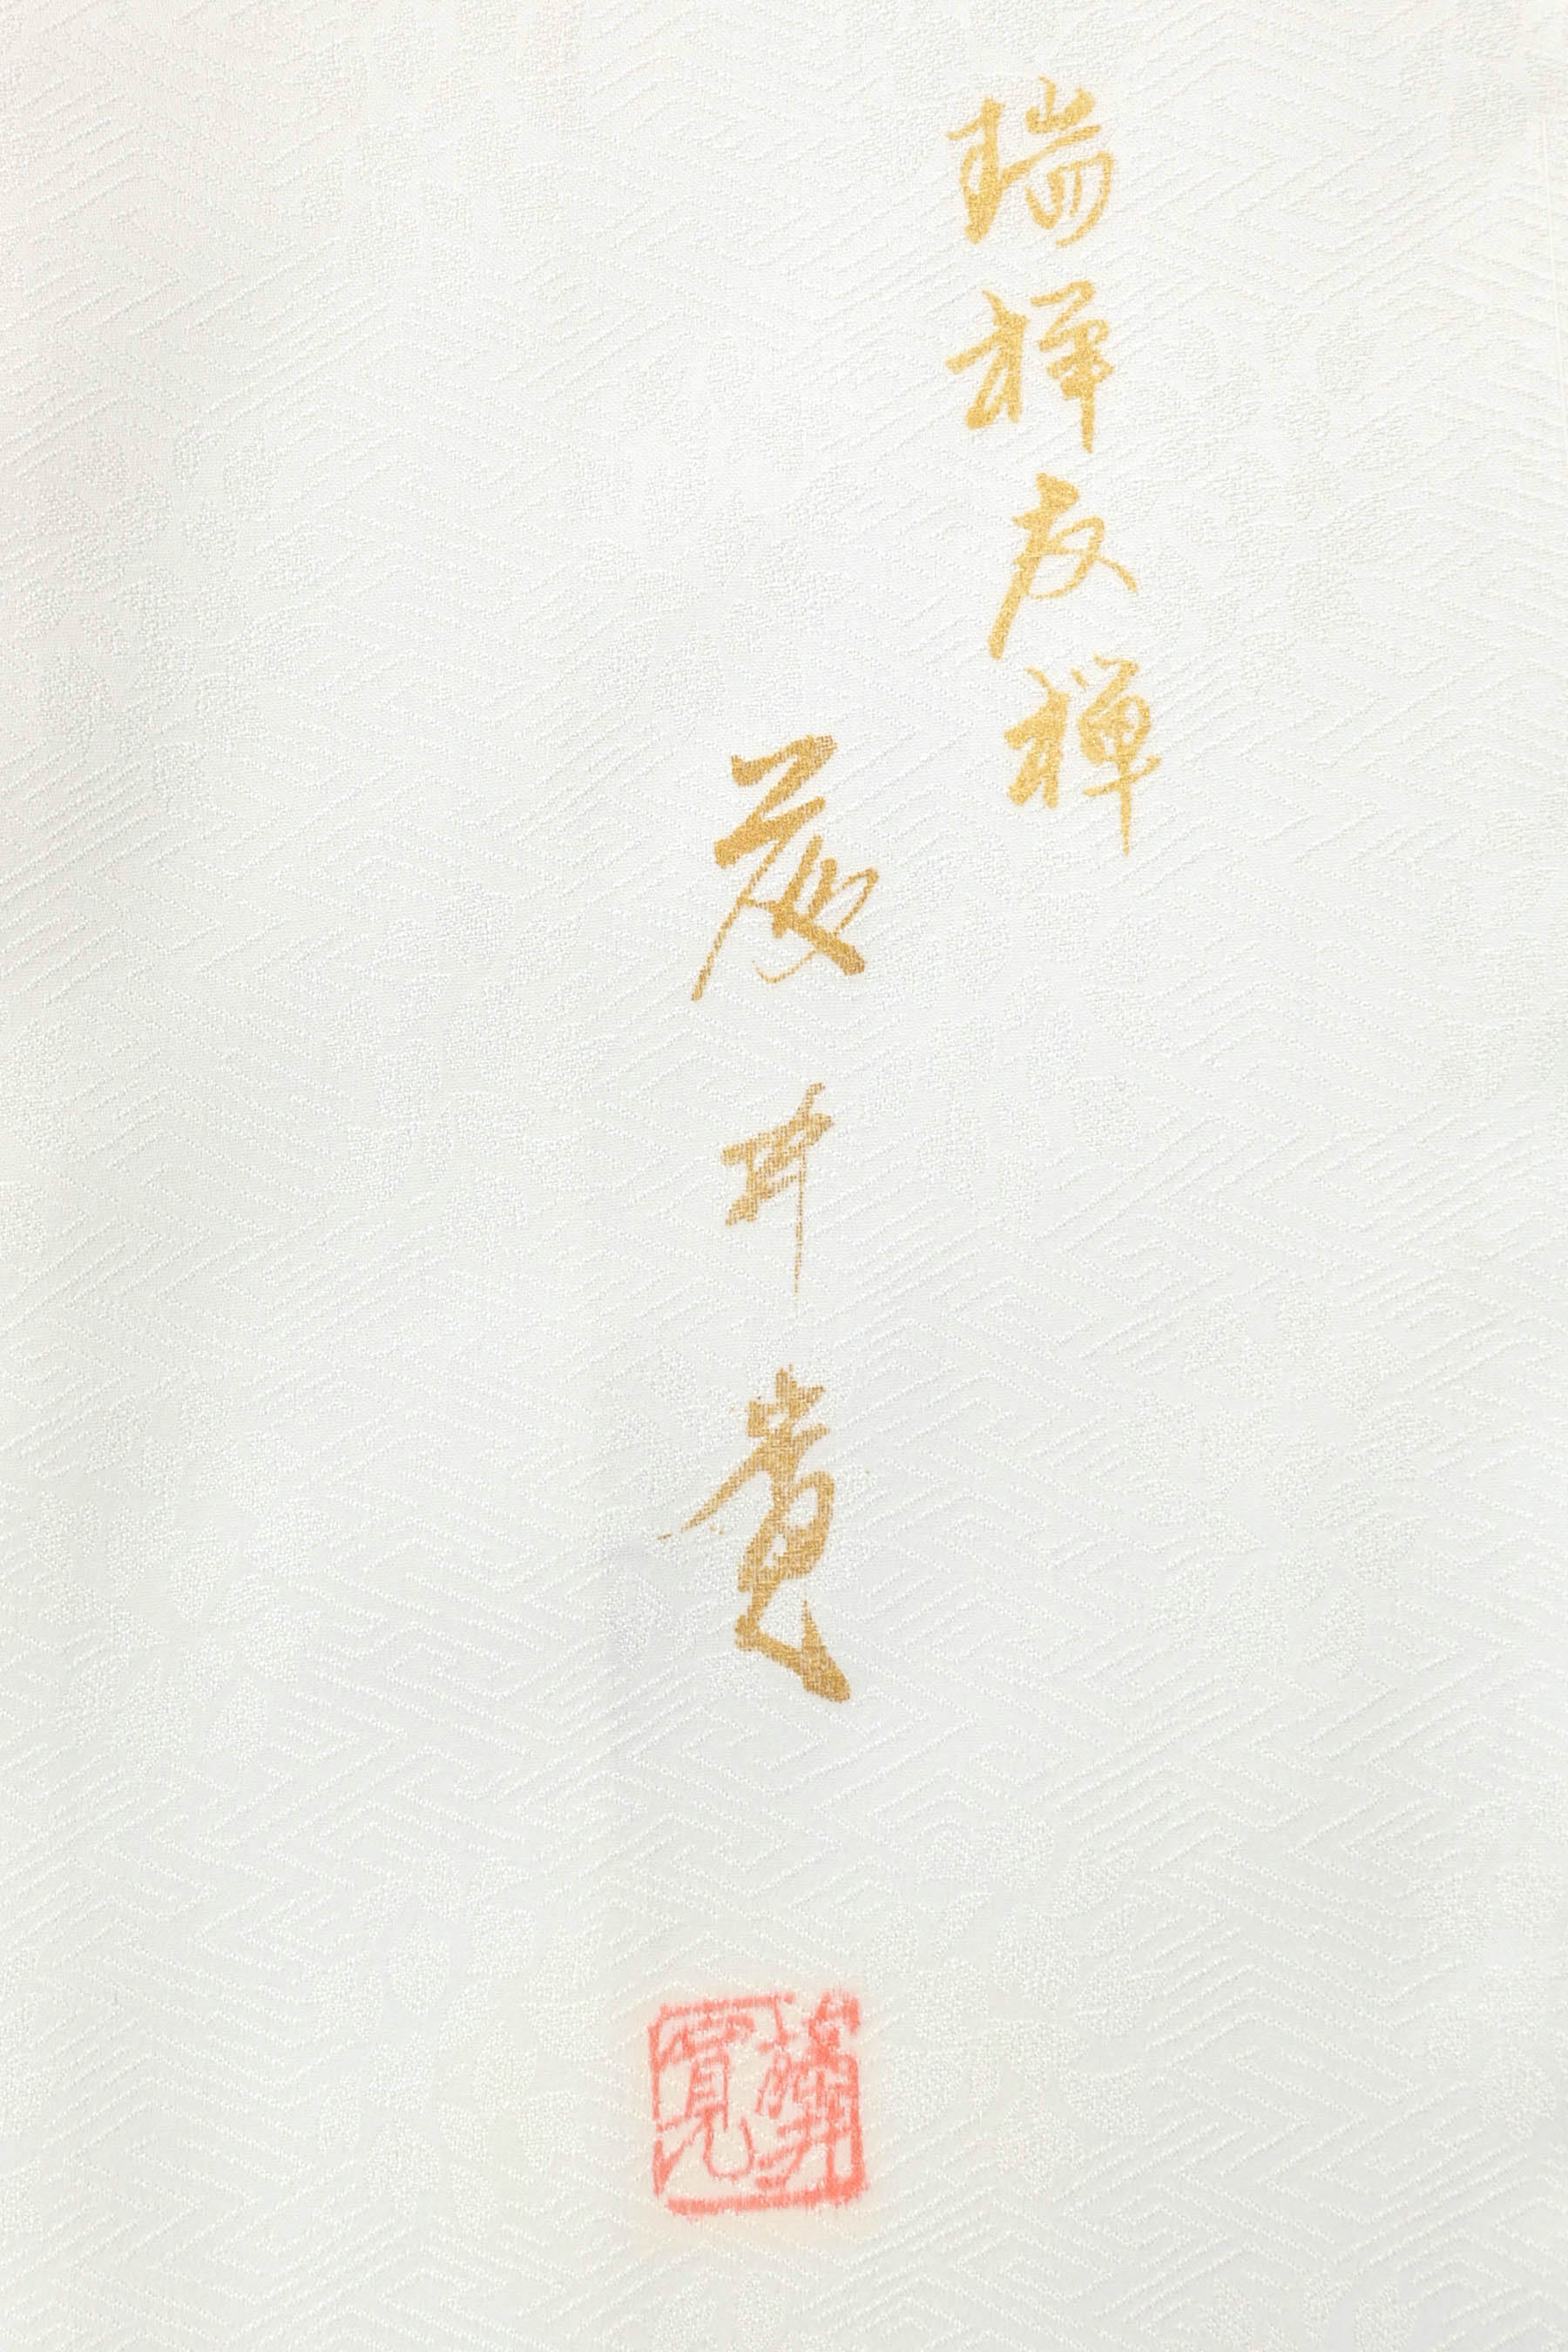 瑞祥友禅
藤井寛
藤井寛